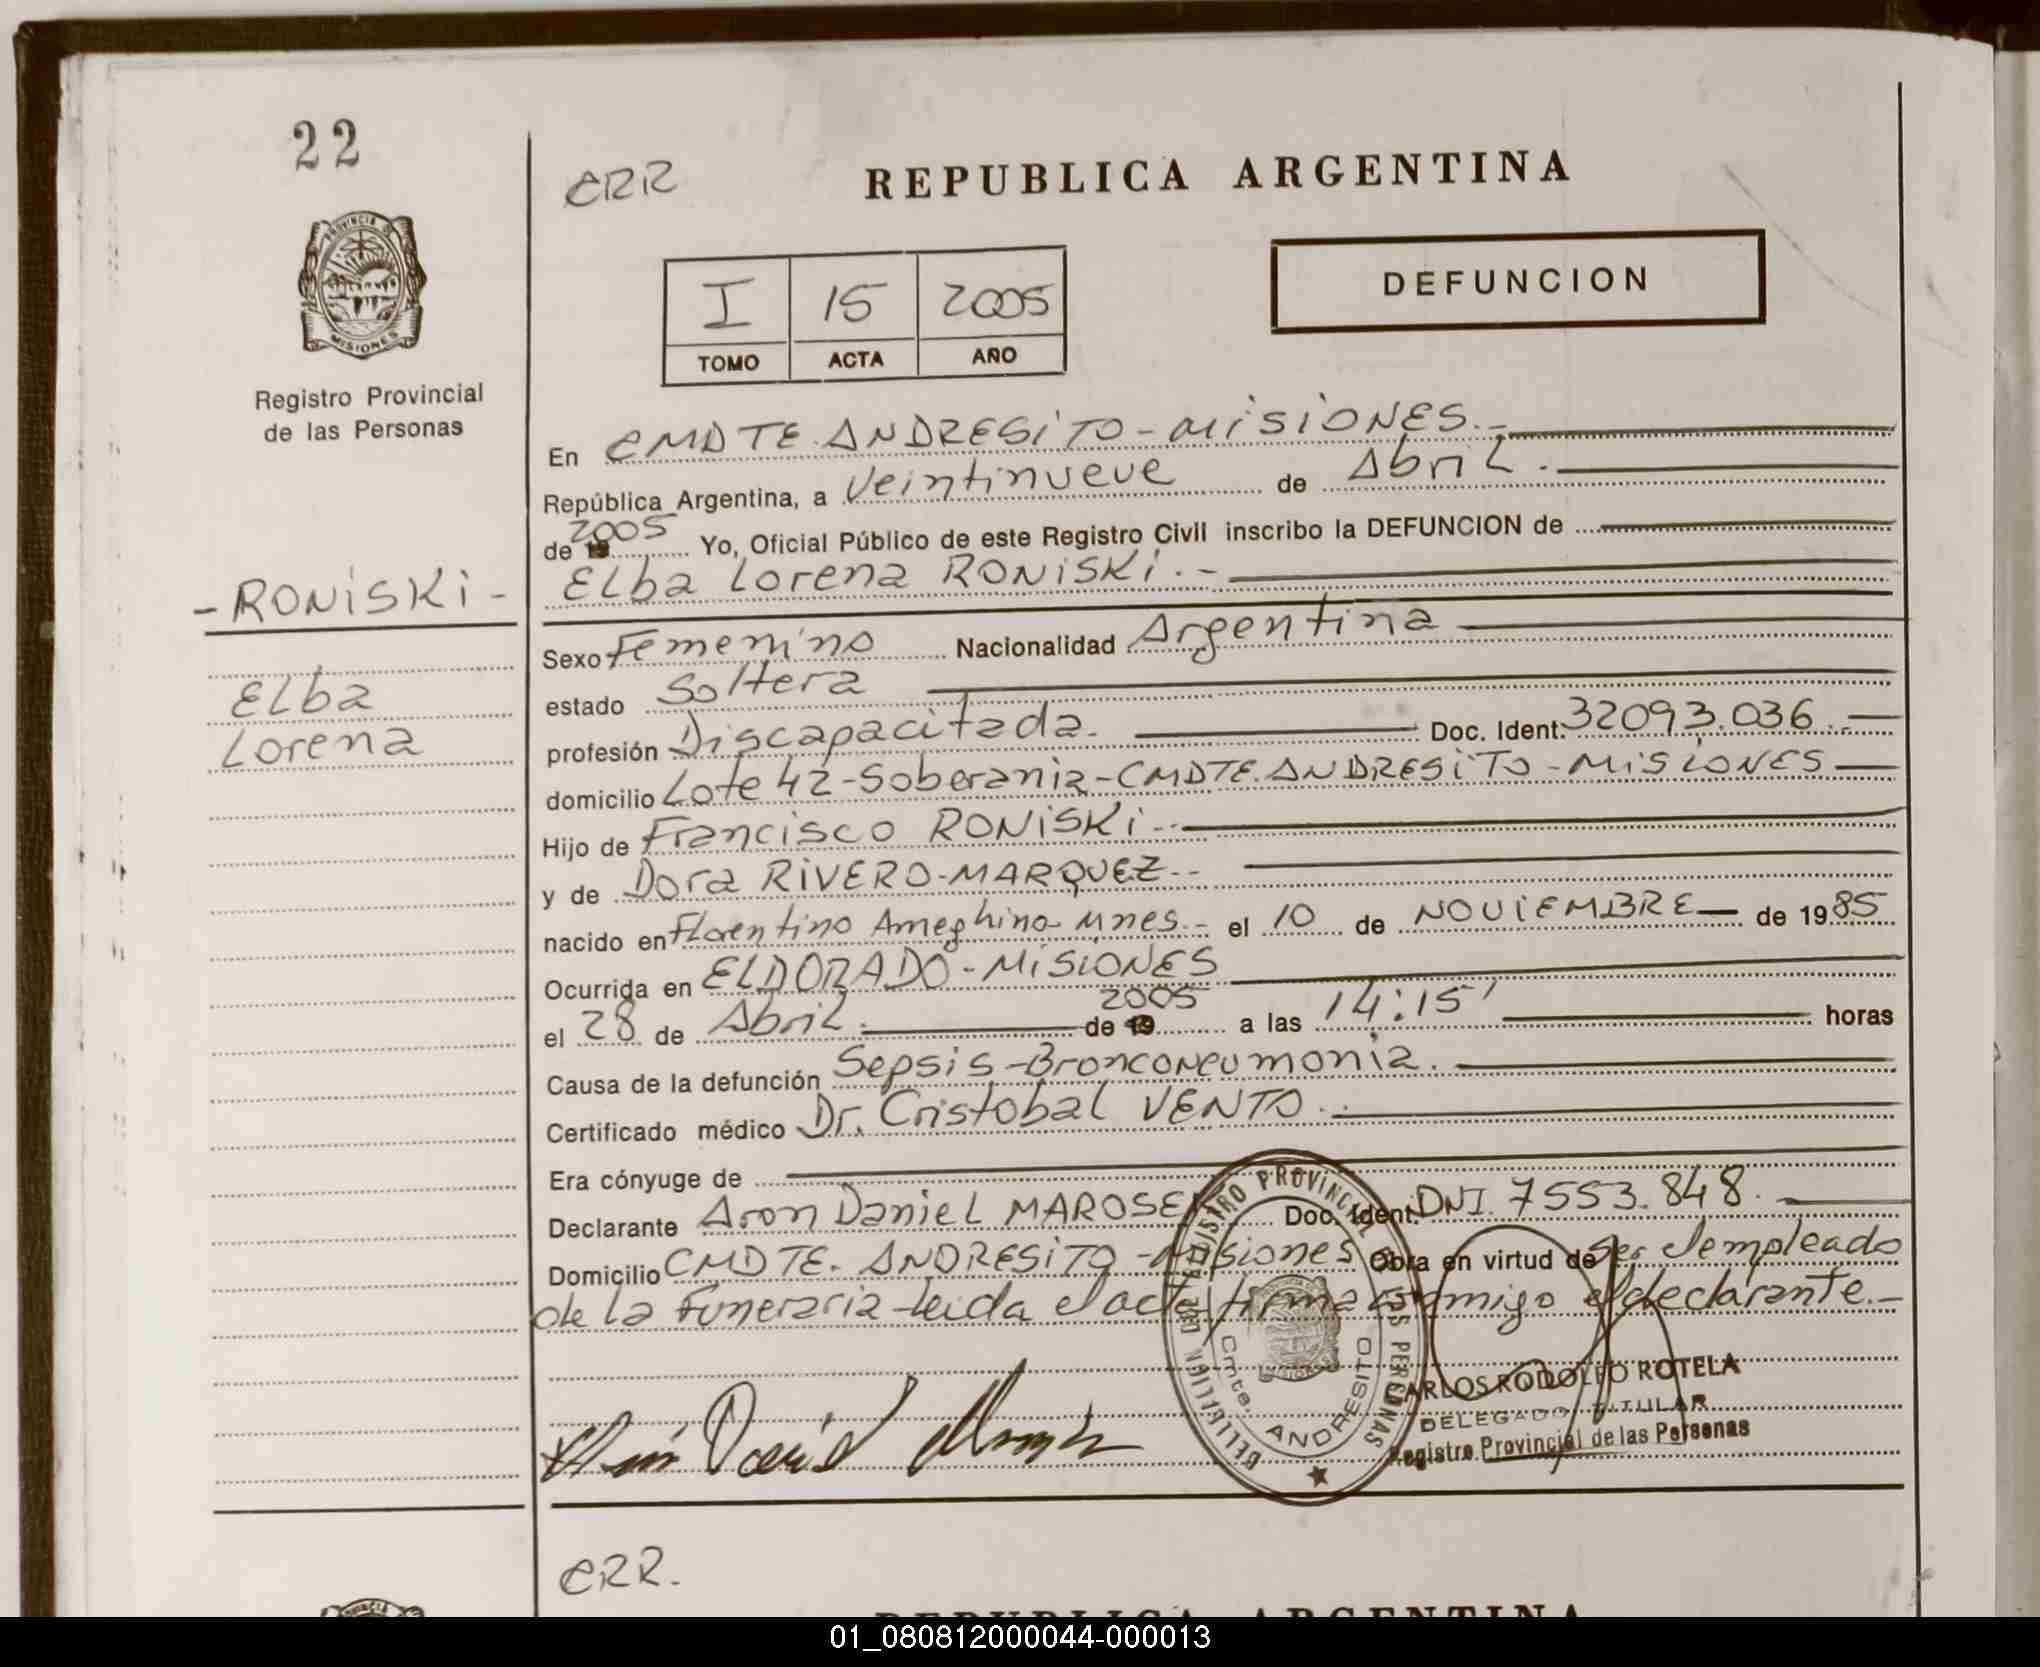 22
CRR
REPUBLICA ARGENTINA
PROVINCIA DE
MISIONES
Registro Provincial
de las Personas
I 15 2005
TOMO ACTA AÑO
DEFUNCION
En CMDTE. ANDRESiTO - MiSiONES.-
República Argentina, a Veintinueve de Abril.
de 19 2005 Yo, Oficial Público de este Registro Civil inscribo la DEFUNCION de
Elba Lorena RONiSKi.-
- RONiSKi -
Elba
Lorena
Sexo Femenino Nacionalidad Argentina
estado Soltera
profesión Discapacitada. Doc. Ident. 32093.036.-
domicilio Lote 42-Soberania-CMDTE.ANDRESiTO-MiSiONES
Hijo de Francisco RONiSKi.-
y de Dora RiVERO-MARQUEZ.-
nacido en Florentino Ameghino-Mnes.- el 10 de NOViEMBRE de 1985
Ocurrida en ELDORADO-MiSiONES
el 28 de Abril. de 19 2005 a las 14:15' horas
Causa de la defunción Sepsis-Bronconeumonia.
Certificado médico Dr. Cristobal VENTO.
Era cónyuge de
Declarante Aron Daniel MAROSE Doc. Ident. DNI. 7553.848.
Domicilio CMDTE. ANDRESiTO - Misiones Obra en virtud de ser Empleado
de la Funeraria leida el acta firma conmigo el declarante.-
DELEGACION REGISTRO PROVINCIAL DE LAS PERSONAS
Cmte. ANDRESITO
CARLOS RODOLFO ROTELA
DELEGADO TITULAR
Registro Provincial de las Personas
CRR.
REPUBLICA ARGENTINA
01_080812000044-000013